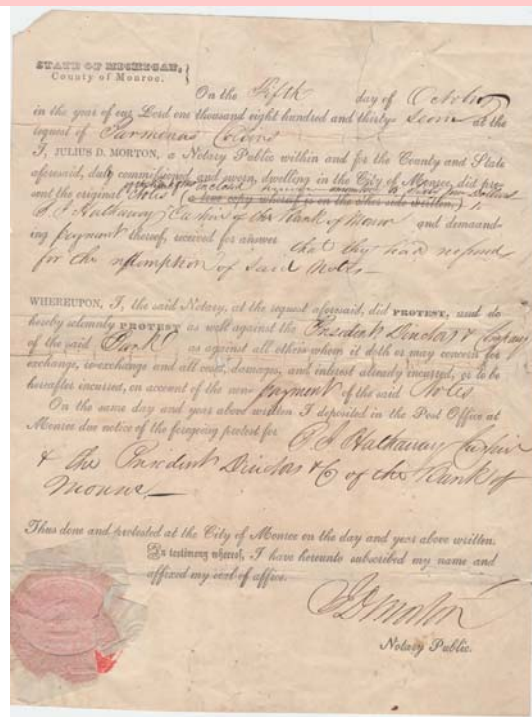 STATE OF MICHIGAN, }
County of Monroe.
On the Fifth day of October
in the year of our Lord one thousand eight hundred and thirty at the
request of Parmenas Collins
I, JULIUS D. MORTON, a Notary Public within and for the County and State
aforesaid, duly commissioned and sworn, dwelling in the City of Monroe, did pre-
sent the original Notes (a true copy whereof is on the other side written) to
Hathaway Cashier of the Bank of Monroe and demand-
ing payment thereof, received for answer that they had no funds
for the redemption of said Notes—
WHEREUPON, I, the said Notary, at the request aforesaid, did PROTEST, and do
hereby solemnly PROTEST as well against the President Directors & Company
of the said Bank as against all others whom it doth or may concern for
exchange, re-exchange and all costs, damages, and interest already incurred, or to be
hereafter incurred, on account of the non-payment of the said Notes
On the same day and year above written I deposited in the Post Office at
Monroe due notice of the foregoing protest for Hathaway Cashier
& the President Directors & Co of the Bank of
Monroe.—
Thus done and protested at the City of Monroe on the day and year above written.
In testimony whereof, I have hereunto subscribed my name and
affixed my seal of office.
J D Morton
Notary Public.